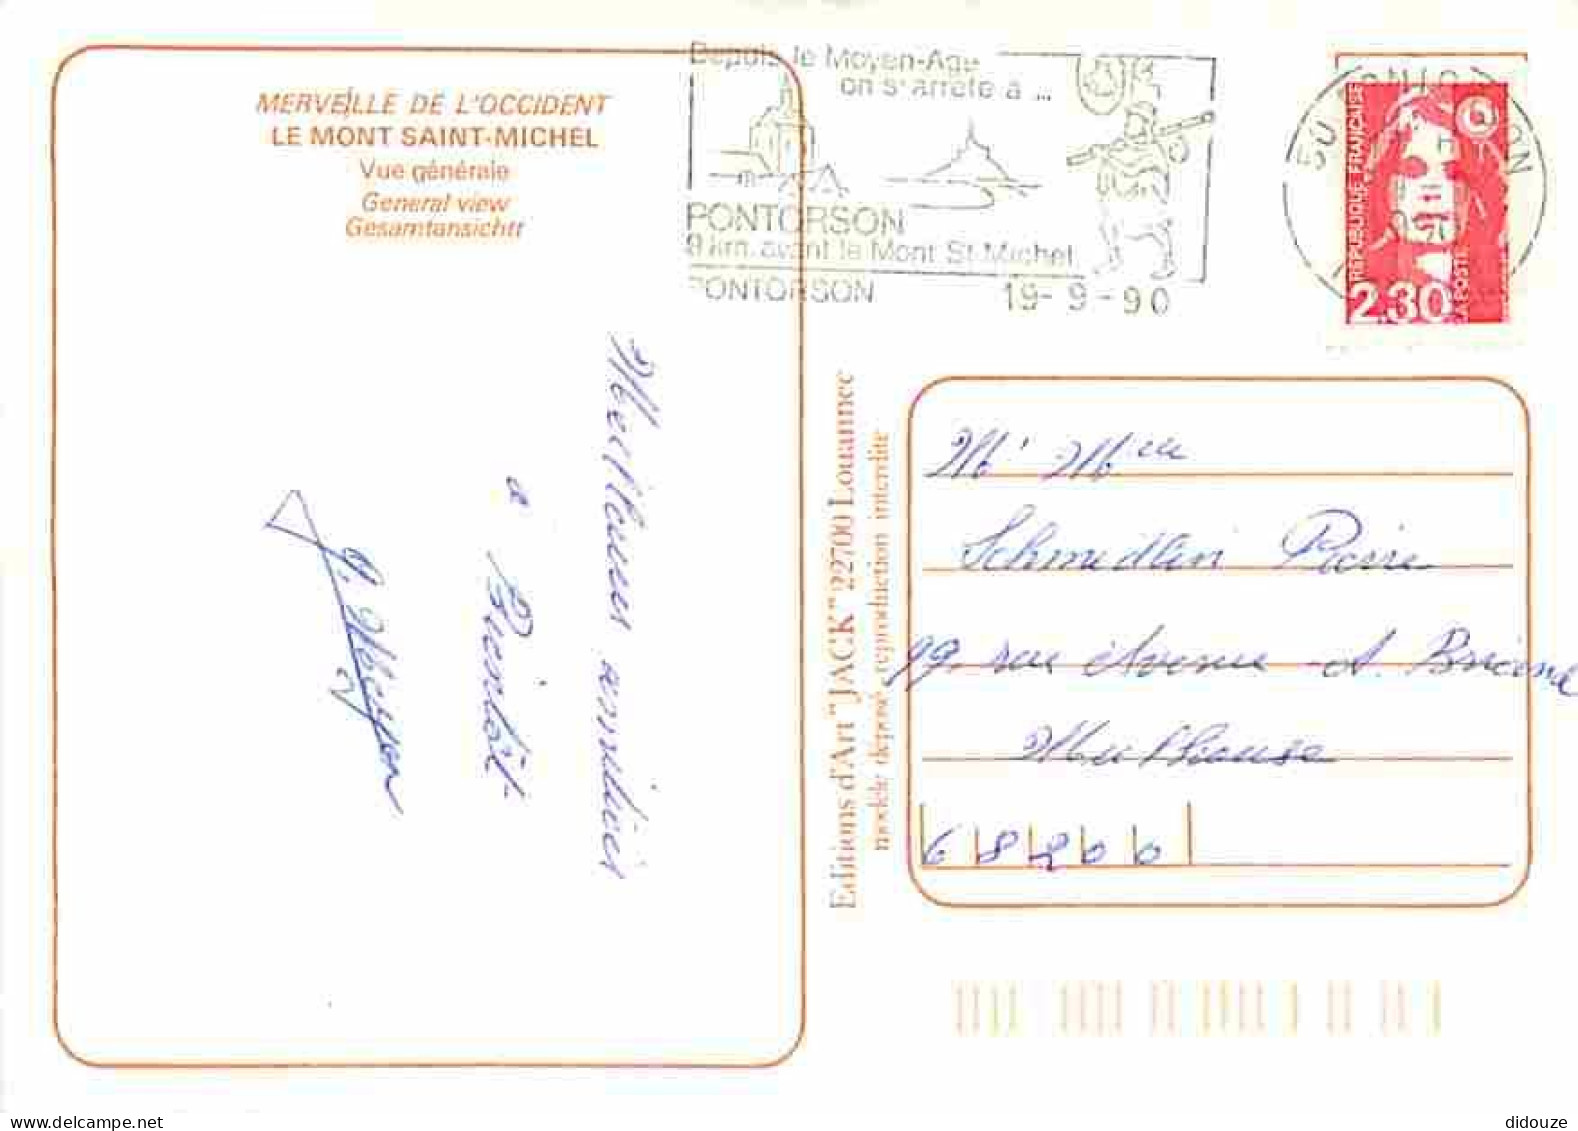 MERVEILLE DE L'OCCIDENT
LE MONT SAINT-MICHEL
Vue générale
General view
Gesamtansicht
Depuis le Moyen-Age
on s'arrête à ...
PONTORSON
9 km. avant le Mont St-Michel
PONTORSON
19-9-90
50 PONTORSON
REPUBLIQUE FRANÇAISE
LA POSTE
2,30
Meilleurs souvenirs
a
Bientôt
Editions d'Art "JACK" 22700 Louannec
modèle déposé - reproduction interdite
Mr Mme
Schmidlin Pierre
99, rue Avenue A. Briand
Mulhouse
68200
didouze